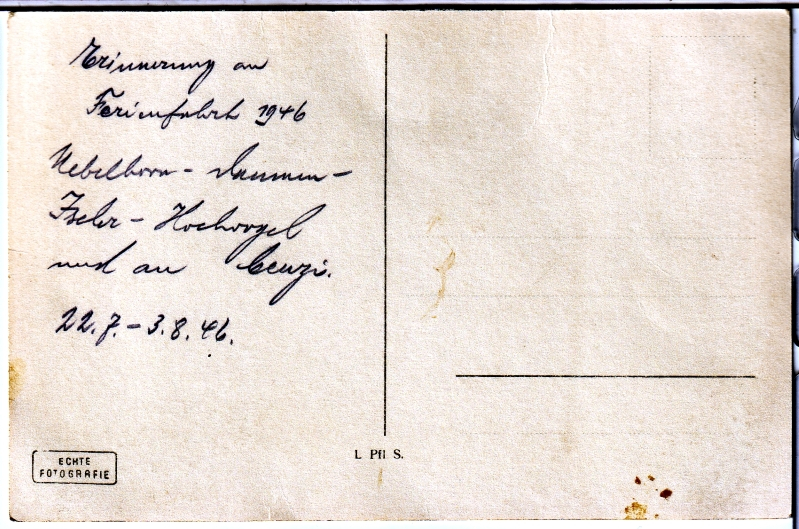 Erinnerung an
Ferienfahrt 1946
Nebelhorn - Daumen -
Iseler - Hochvogel
und an Cenzi.
22.7. - 3.8.46.
L Pfl S.
ECHTE
FOTOGRAFIE